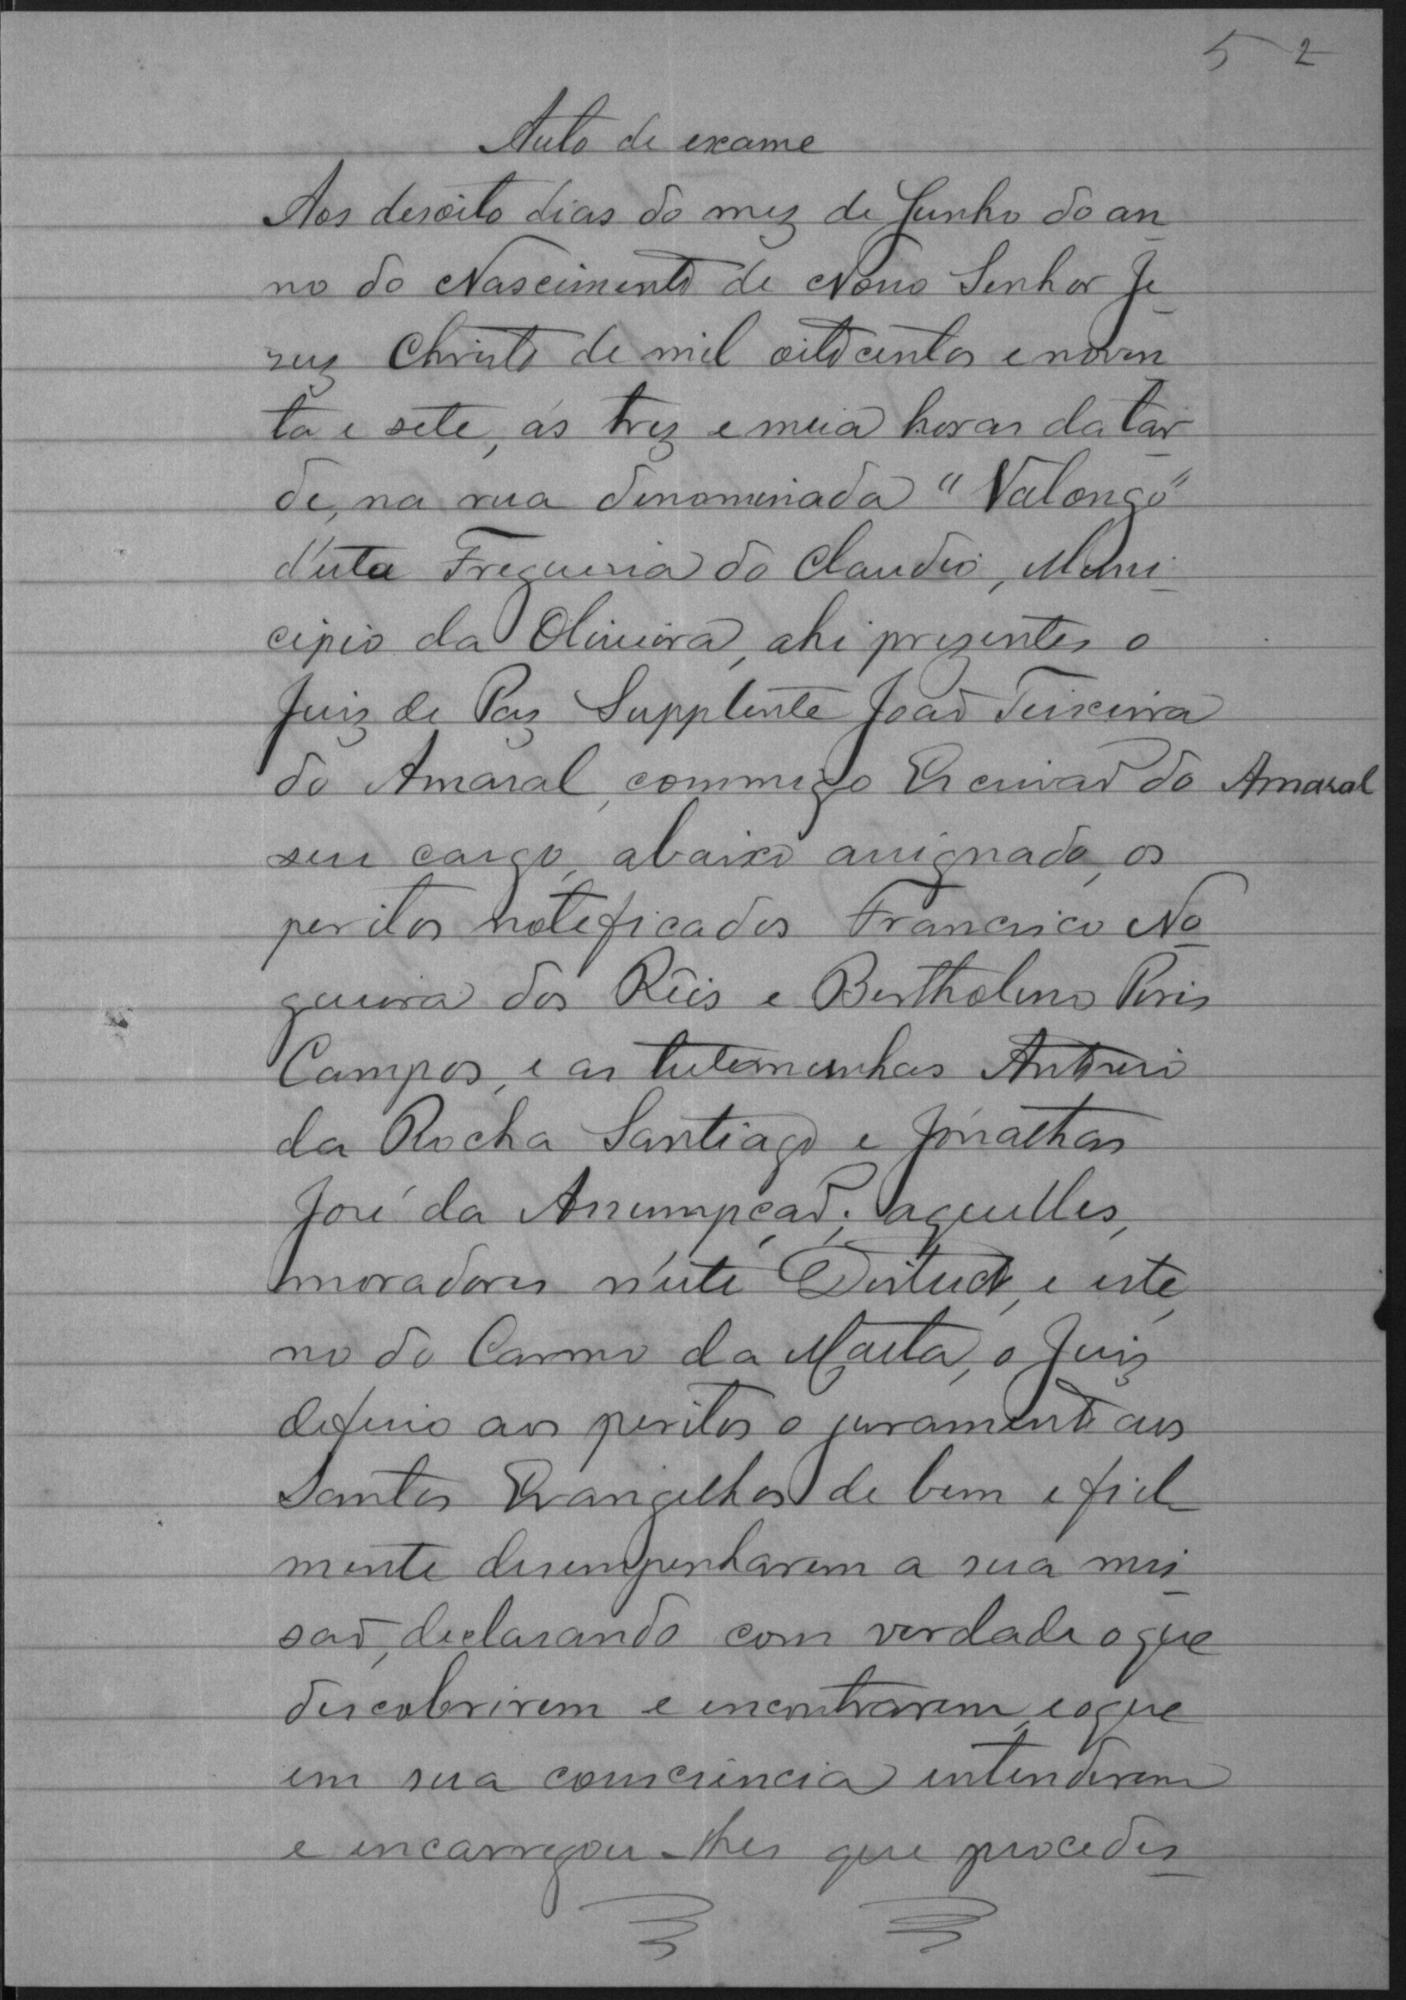 5 2
Auto de exame
Aos desoito dias do mez de Junho do an
no do Nascimento de Nosso Senhor Je
suz Christo de mil oitocentos e noven
ta e sete, ás trez e meia horas da tar
de, na rua denominada "Valongo"
d'esta Freguesia do Claudio, Muni
cipio da Oliveira, ahi prezentes o
Juiz de Paz Supplente João Teixeira
do Amaral, commigo Escrivão do Amaral
seu cargo, abaixo assignado, os
peritos noteficados Francisco No
gueira dos Rêis e Bertholino Peris
Campos, e as testemunhas Antonio
da Rocha Santiago e Jónathas
José da Assumpção; aquelles,
moradores n'este Districto, e este,
no do Carmo da Matta, o Juiz
deferio aos peritos o juramento aos
Santos Evangelhos de bem e fiel
mente desempenharem a sua mis
são, declarando com verdade o que
descobrirem e encontrarem, e o que
em sua consciencia entenderem
e encarregou-lhes que procedes